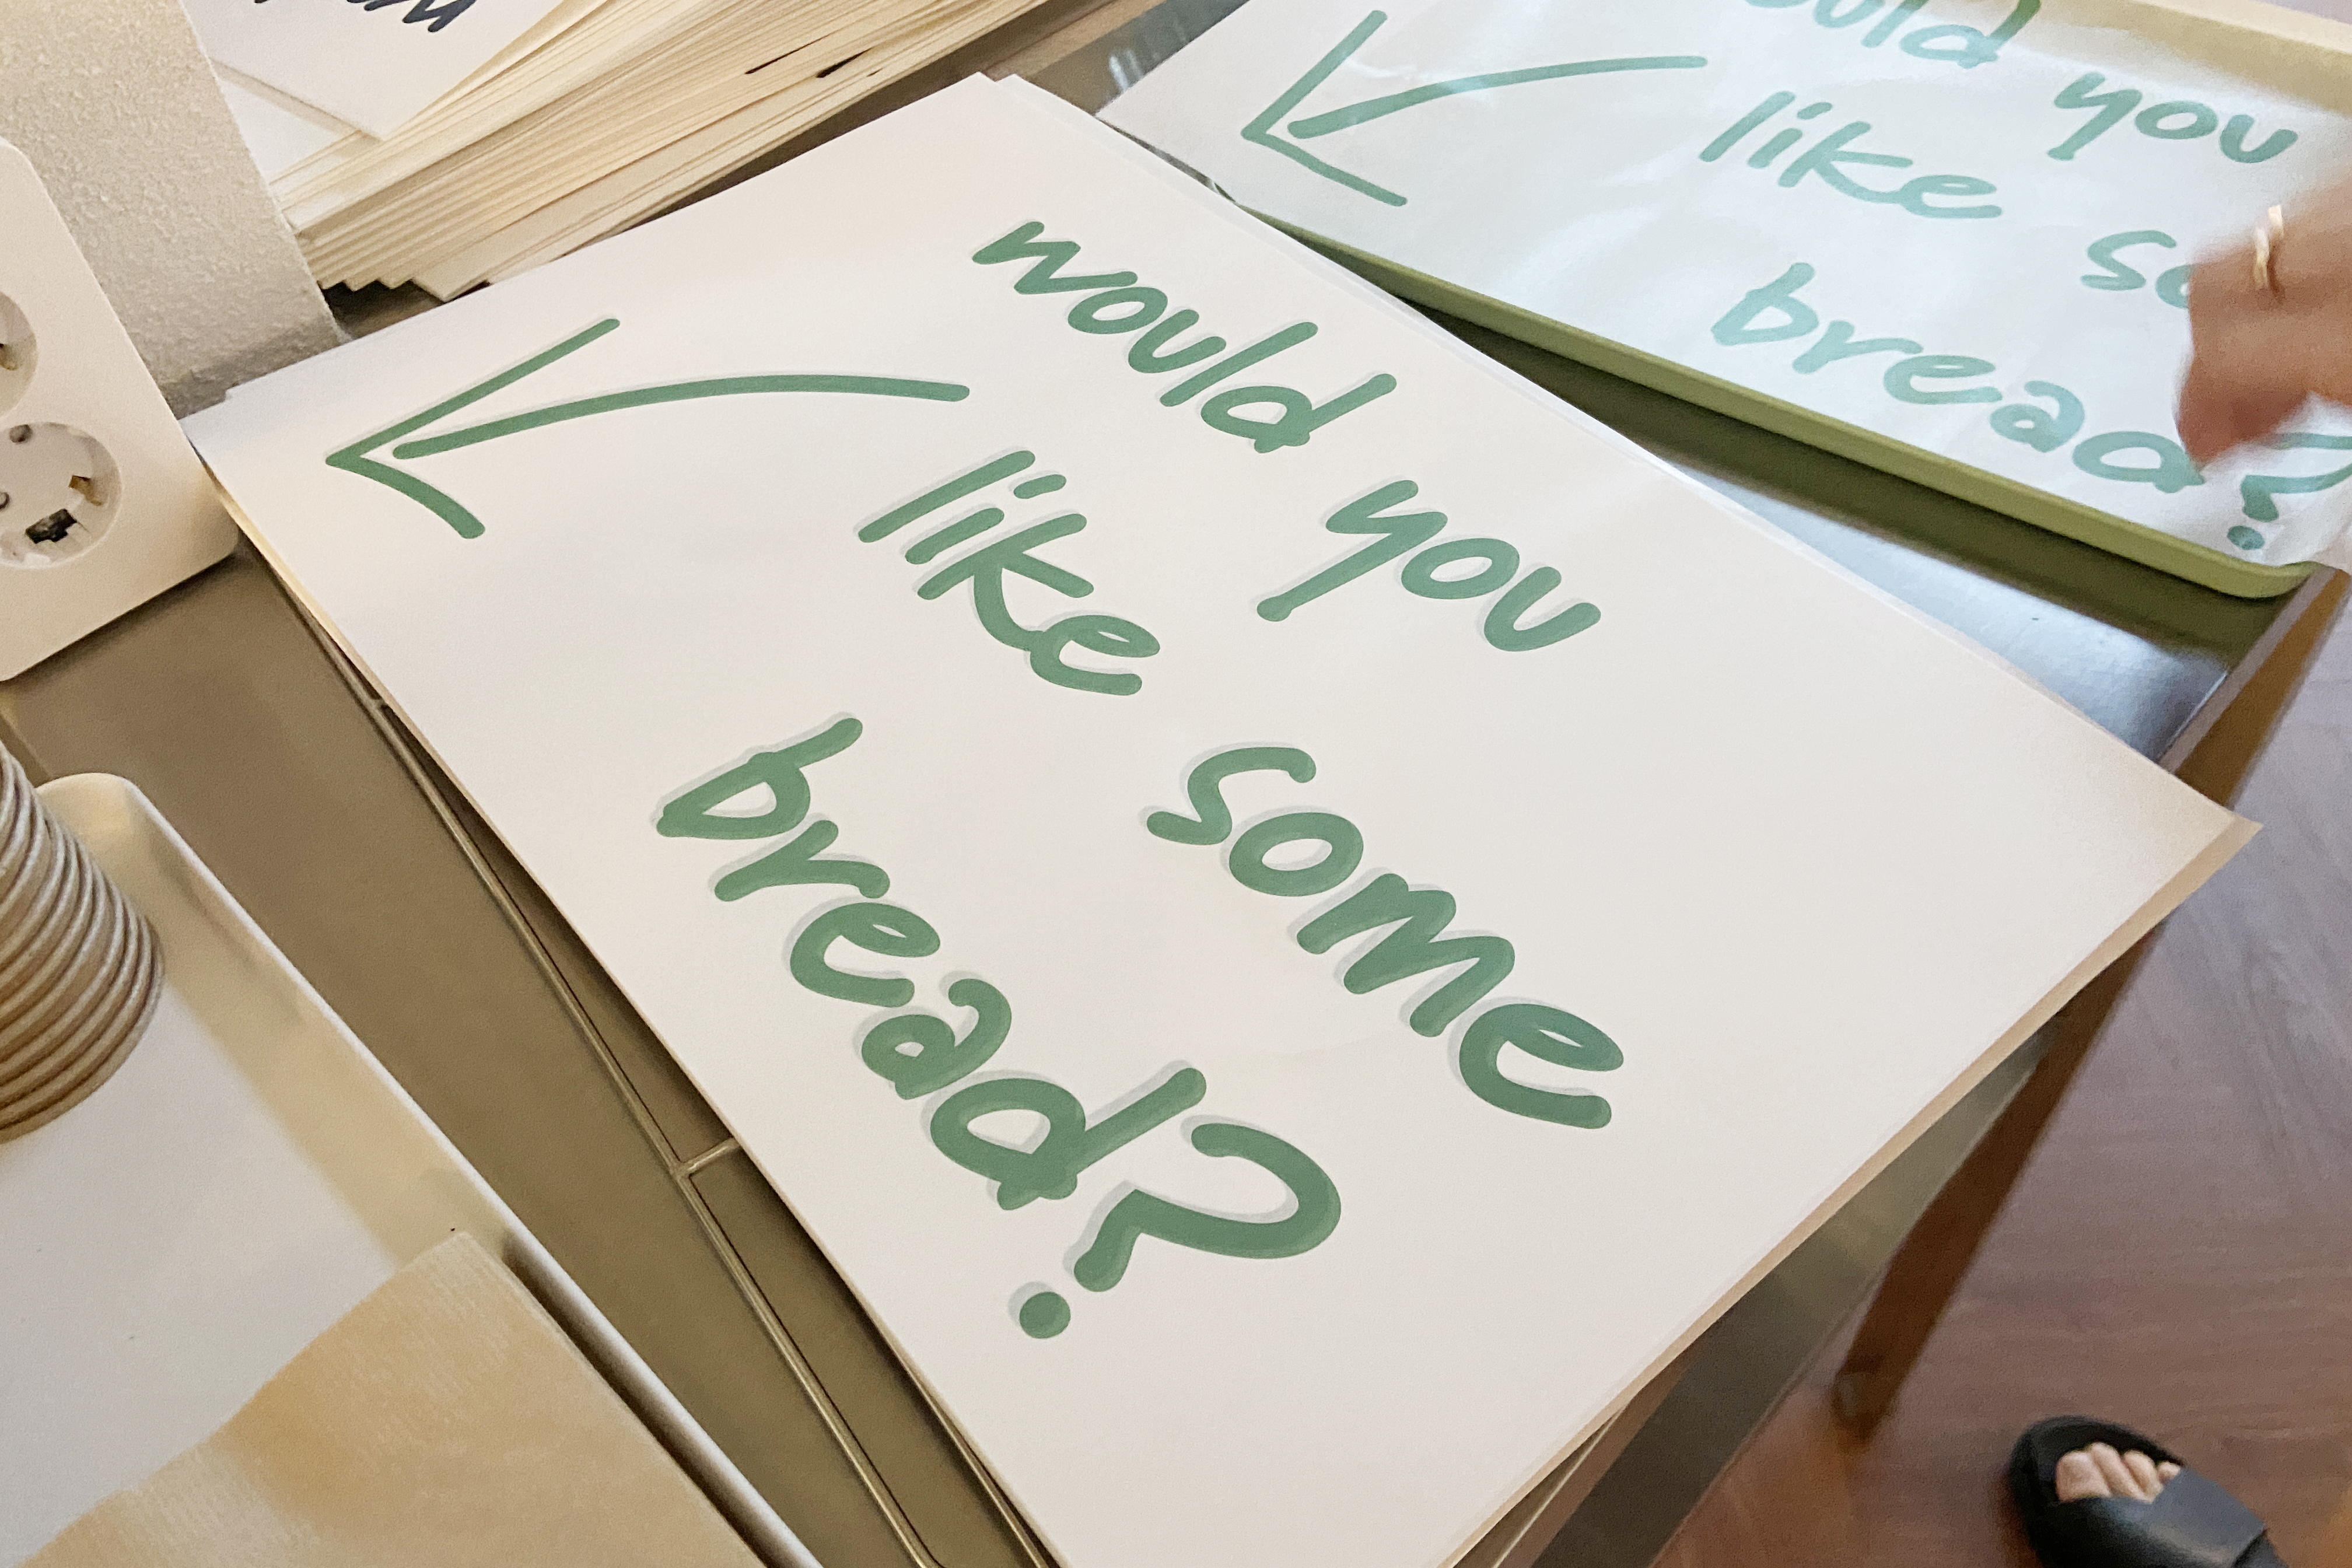 would you
like some
bread?
would you
like
bread?